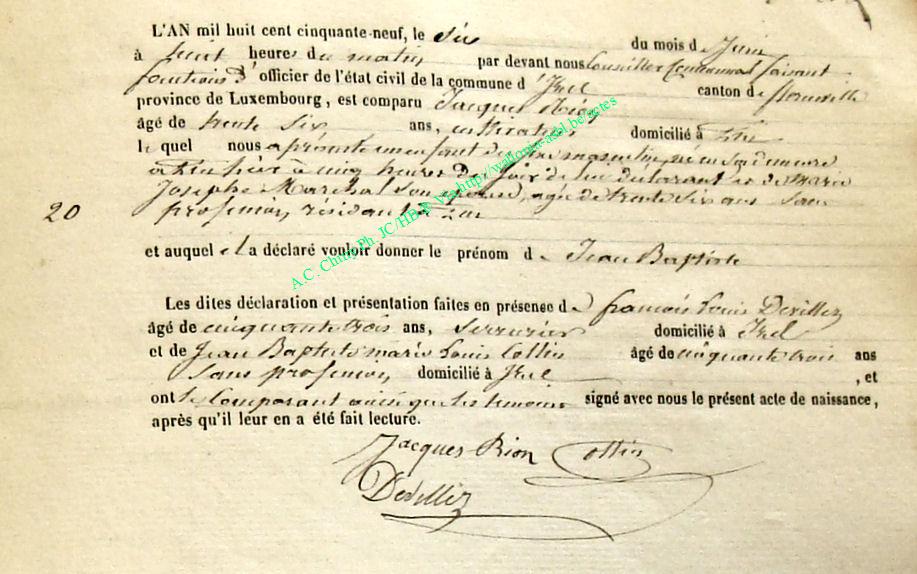 L'AN mil huit cent cinquante-neuf, le six du mois de Juin
à huit heures du matin par devant nous Conseiller Communal faisant
fonctions d'officier de l'état civil de la commune d'Izel canton de florenville
province de Luxembourg, est comparu Jacques
âgé de trente six ans, cultivateur, domicilié à Izel
le quel nous a présenté un enfant de sexe masculin, né en sa demeure
à cinq heures du soir de lui déclarant et de Marie
Josephe Maréchal son épouse, agée de trente six ans sans
profession, résidant à Izel
20
et auquel il a déclaré vouloir donner le prénom de Jean Baptiste
Les dites déclaration et présentation faites en présence de françois Louis Devillez
âgé de cinquante trois ans, serrurier domicilié à Izel
et de Jean Baptiste marie Louis Collin âgé de cinquante trois ans
sans profession, domicilié à Izel, et
ont le Comparant ainsi que les temoins signé avec nous le présent acte de naissance,
après qu'il leur en a été fait lecture.
Jacques Rion Collin
Devillez
A.C. Chiny Ph. JC/HB-R via http://wallonia-asbl.be/actes